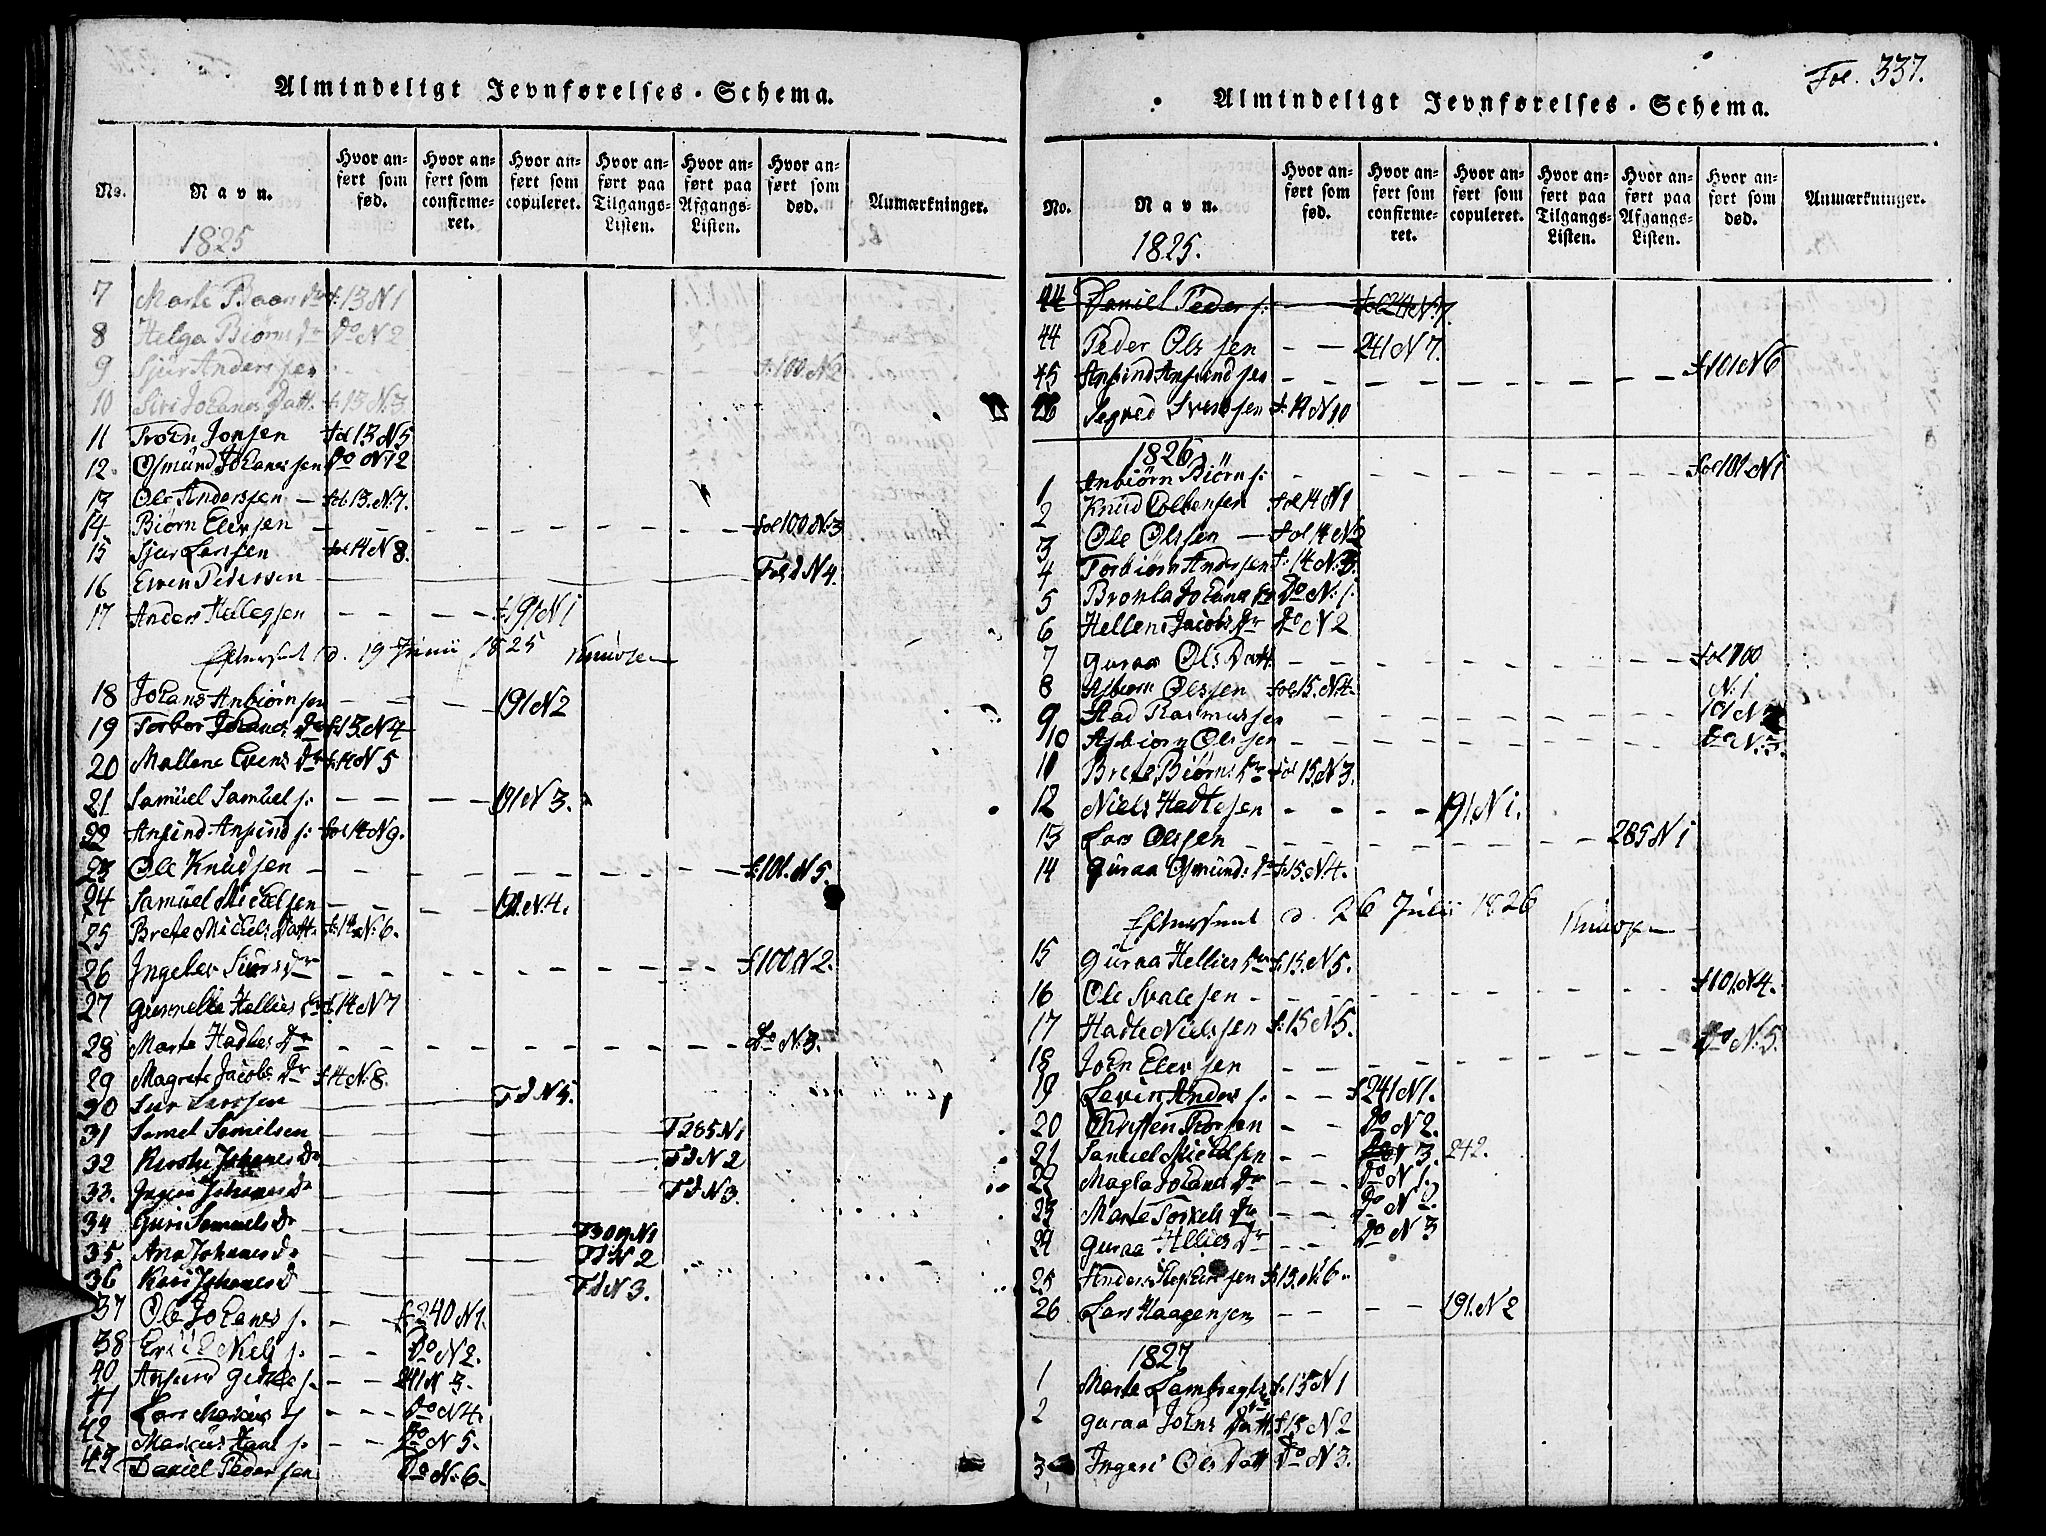 Almindeligt Jevnførelses-Schema.
No.
Navn.
Hvor anført som fød.
Hvor anført som confirmeret.
Hvor anført som copuleret.
Hvor anført paa Tilgangs-Listen.
Hvor anført paa Afgangs-Listen.
Hvor anført som død.
Anmærkninger.
1825
7 Marte Baars Dr f. 13 N 1
8 Helga Biørns Dr Do N 2
9 Sjur Anderssen f. 100 N 2
10 Siri Johanes Datt. f. 13 N. 3.
11 Troen Jonsen fol 13 N 5
12. Osmund Johanessen Do N. 12
13 Ole Anderssen — fol. 13. N. 7.
14 Biørn Elevsen fol 100 N. 3
15 Sjur Larssen fol 14 N 8.
16 Even Pederssen Fol d N 4.
17 Anders Hellegsen f. 191 N 1
Efterseet d. 19 Junii 1825 Knudsen
18 Johans Anbiørnsen 191 N 2
19 Torbor Johanes Dr f. 13. N 4
20 Mallene Evens Dr f. 14 N 5
21 Samuel Samuel s: 191 N 3.
22 Ansind Ansind s: fol 14 N 9.
23 Ole Knudsen f. 101. N 5.
24 Samuel Michelsen 191. N. 4.
25 Brete Michels Datt. f. 14 N. 6.
26 Ingebor Siurs Dr f. 100 N 2.
27 Gunnelle Hellies Dr f. 14 N 7
28 Marte Hadles Dr Do N. 3.
29 Magrete Jacobs Dr f. 14 N. 8.
30 Siur Larssen F d N 5.
31 Samel Samelsen F 285 N 1
32 Kirstie Johanes Dr F d N 2
33. Ingeri Johanes Dr F d N 3.
34 Guri Samuels Dr F 309 N 1
35. Ana Johanes Dr F d N 2
36 Kari Johanes D F d N 3.
37 Ole Johanes s. f. 240 N 1.
38 Erich Nels s. Do N 2.
40 Ansund Gitle s. 241 N 3.
41 Lars Marcus s Do N 4.
42 Marcus Haae s. Do N 5.
43 Daniel Pedersen Do N. 6.
Fol. 337.
Almindeligt Jevnførelses-Schema.
No.
Navn.
Hvor anført som fød.
Hvor anført som confirmeret.
Hvor anført som copuleret.
Hvor anført paa Tilgangs-Listen.
Hvor anført paa Afgangs-Listen.
Hvor anført som død.
Anmærkninger.
1825.
44 Daniel Peder s: fol 241 N. 7.
44 Peder Olssen 241 N 7.
45 Ansind Ansindsen f 101 N 6
46 Segved Svenssen f. 14 N 10
1826
1 Anbiørn Biørn s: fol 101 N 1
2 Knud Colbensen fol 14 N 1
3 Ole Olssen — fol 14 N 2
4 Torbiørn Anderssen f. 14 N. 3.
5 Bronla Johans Dr Do N. 1.
6 Hellene Jacobs Dr Do N 2
7 Guraa Ols Datt. fol 100 N. 1
8 Asbiørn Olssen fol 15. N. 4.
9 Stad Rasmussen 101 N
10 Asbiørn Olssen Do N. 3.
11 Brete Biørns Dr fol 15 N 3.
12 Niels Hadlesen 191 N 1.
13 Lars Olssen 285 N 1
14 Guraa Osmund: Dr f. 15. N. 4.
Efterseet d. 26 Julii 1826 Knudsen
15 Guraa Hellies Dr f. 15. N 5.
16 Ole Svalesen f 101. N 4.
17 Hadle Nielssen f. 15 N 5.
18 John Elevsen Do N. 5.
19 Levin Anders s. f 241 N 1.
20 Christen Thorsen Do N 2.
21 Samuel Michelsen Do N 3. 242.
22 Magla Johanes Dr Do N 1.
23 Marte Torkels Dr Do N 2.
24 Guraa Hellies Dr Do N 3
25 Anders Stephensen f. 15. N. 6.
26 Lars Haagensen 191. N 2
1827
1 Marte Lambregts f. 15 N 1
2 Guraa Johns Datt. f. 15 N 2
3 Ingeri Ols Datt Do N 3.